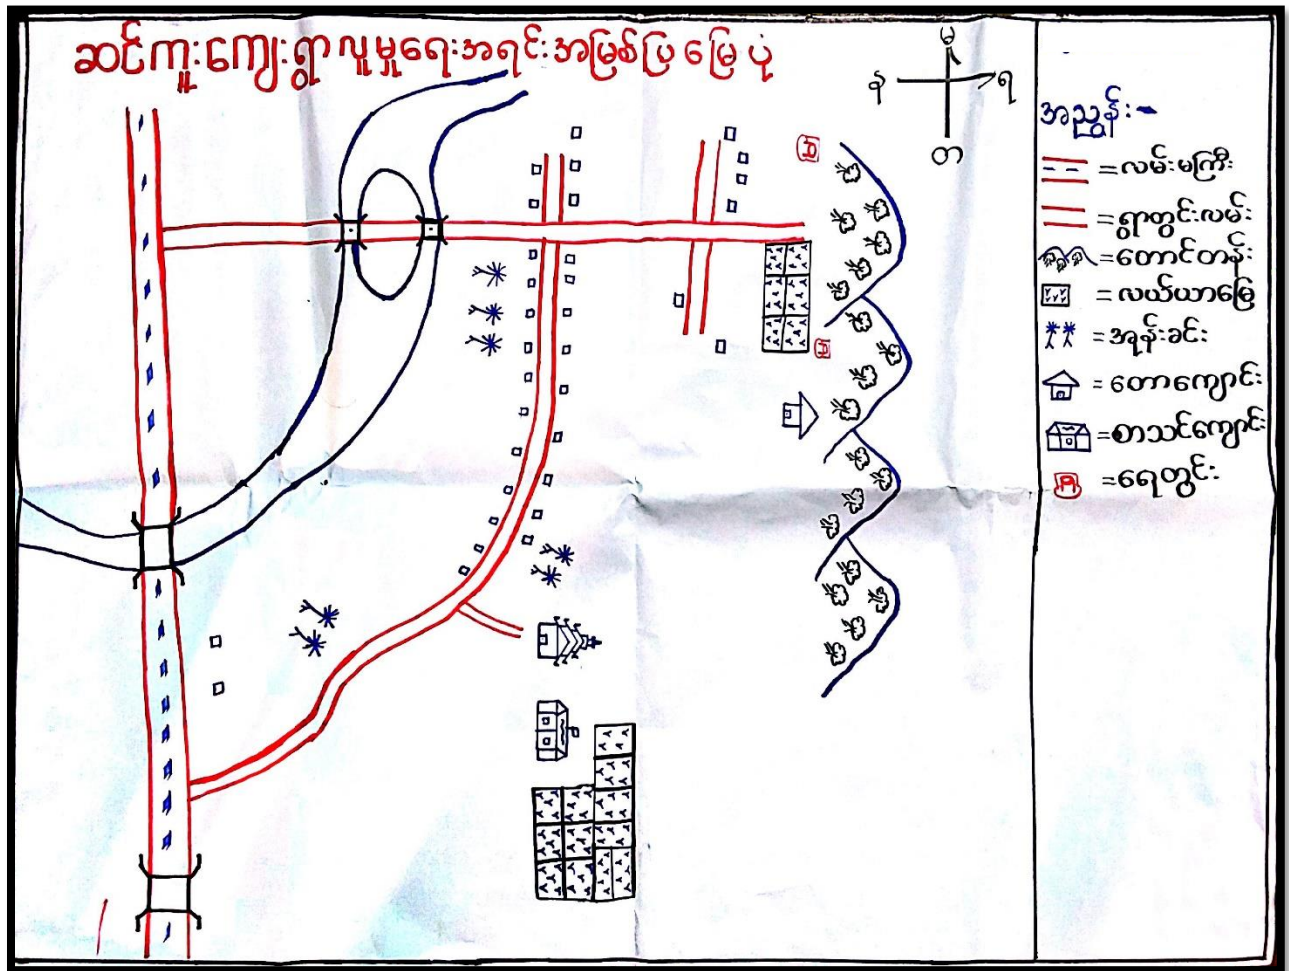 ဆင်ကူးကျေးရွာလူမှုရေးအရင်းအမြစ်ပြမြေပုံ
မ
န
ရ
တ
အညွှန်း-
=လမ်းမကြီး
=ရွာတွင်းလမ်း
=တောင်တန်း
=လယ်ယာမြေ
=အုန်းခင်း
=တောကျောင်း
=စာသင်ကျောင်း
=ရေတွင်း